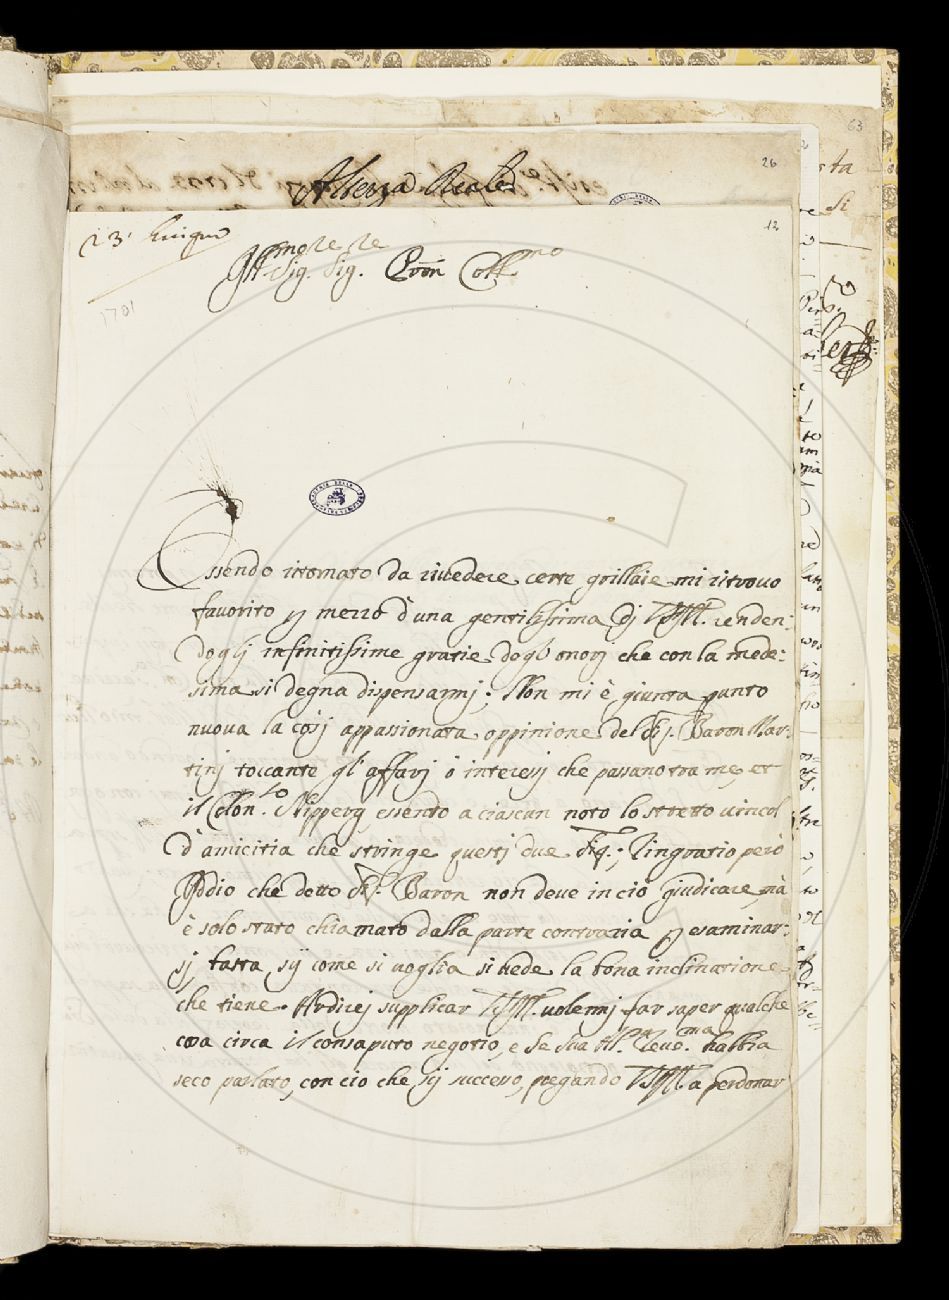 26
Altezza Reale
12
23. Giugno
1701
Ill.mo Sig.re Sig.re Pron Coll.mo
Essendo ritornato da rivedere certe grillaie mi ritrovo
favorito p mezzo d'una gentilissima di VSIll. renden:
dogli infinitissime gratie dogl'onorj che con la mede:
sima si degna dispensarmj; Non mi è giunta punto
nuova la cosj appassionata oppinione del Sig. Baron Mar:
tinj toccante gl'affarj ò interessj che passano tra me et
il Colon.lo Nipperg essendo a ciascun noto lo stretto vincol
d'amicitia che stringe questj due Sig.; Ringratio però
Iddio che detto Sig. Baron non deve in ciò giudicare, già
è solo stato chiamato dalla parte contraria p esaminar:
sj fatta, sij come si voglia si vede la bona inclinatione
che tiene. Ardirej supplicar VSIll. volermj far saper qualche
cosa circa il consaputo negotio, e se sua Al. Rev.ma habbia
seco parlato, con ciò che sij successo, pregando VSIll. a perdonar
63